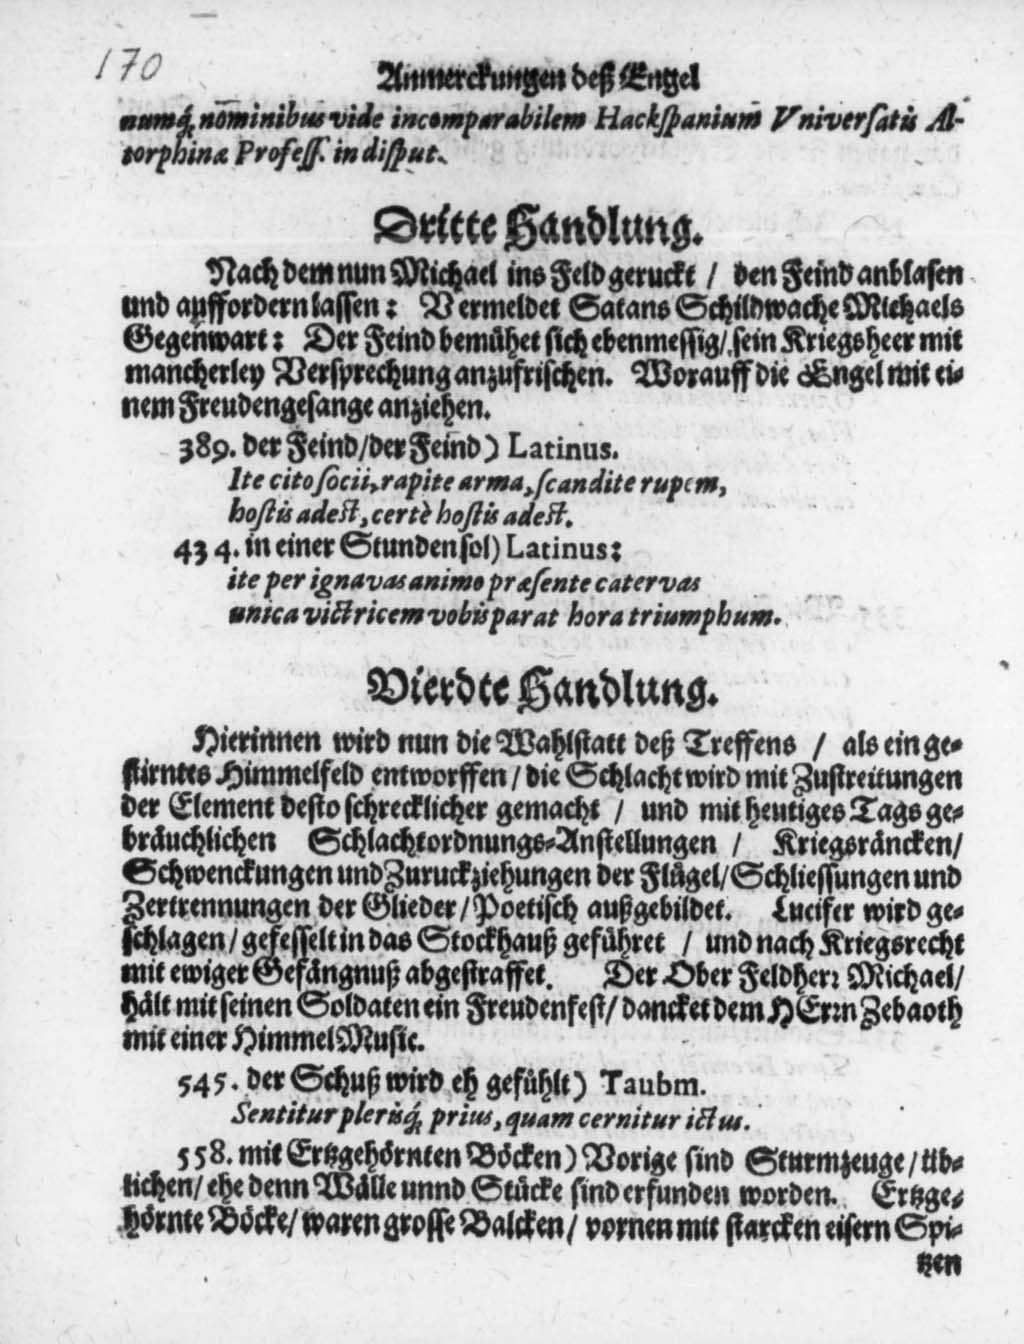 170
Anmerckungen deß Engel
numq́; nominibus vide incomparabilem Hackſpanium Vniverſatis Al-
torphinæ Profeſſ. in diſput.
Dritte Handlung.
Nach dem nun Michael ins Feld geruckt / den Feind anblaſen
und auffordern laſſen: Vermeldet Satans Schildwache Michaels
Gegenwart: Der Feind bemühet ſich ebenmeſſig/ ſein Kriegsheer mit
mancherley Verſprechung anzufriſchen. Worauff die Engel mit ei-
nem Freudengeſange anziehen.
389. der Feind/der Feind) Latinus.
Ite cito ſocii, rapite arma, ſcandite rupem,
hoſtis adeſt, certè hoſtis adeſt.
434. in einer Stunden ſol) Latinus:
ite per ignavas animo præſente catervas
unica victricem vobis parat hora triumphum.
Vierdte Handlung.
Hierinnen wird nun die Wahlſtatt deß Treffens / als ein ge-
ſtirntes Himmelfeld entworffen / die Schlacht wird mit Zuſtreitungen
der Element deſto ſchrecklicher gemacht / und mit heutiges Tags ge-
bräuchlichen Schlachtordnungs-Anſtellungen / Kriegsräncken/
Schwenckungen und Zuruckziehungen der Flügel/ Schlieſſungen und
Zertrennungen der Glieder / Poetiſch außgebildet. Lucifer wird ge-
ſchlagen / gefeſſelt in das Stockhauß geführet / und nach Kriegsrecht
mit ewiger Gefängnuß abgeſtraffet. Der Ober Feldherꝛ Michael/
hält mit ſeinen Soldaten ein Freudenfeſt/ dancket dem HErꝛn Zebaoth
mit einer HimmelMuſic.
545. der Schuß wird eh gefühlt) Taubm.
Sentitur plerisq́; prius, quam cernitur ictus.
558. mit Ertzgehörnten Böcken) Vorige ſind Sturmzeuge / üb-
lichen/ ehe denn Wälle unnd Stücke ſind erfunden worden. Ertzge-
hörnte Böcke/ waren groſſe Balcken/ vornen mit ſtarcken eiſern Spi-
tzen